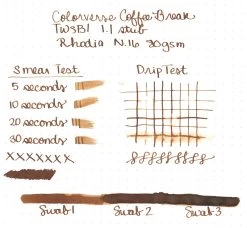 Colorverse Coffee Break
TWSBI 1.1 stub
Rhodia N.16 80gsm
Smear Test
Drip Test
5 seconds
10 seconds
20 seconds
30 seconds
XXXXXXX
Swab 1 Swab 2 Swab 3